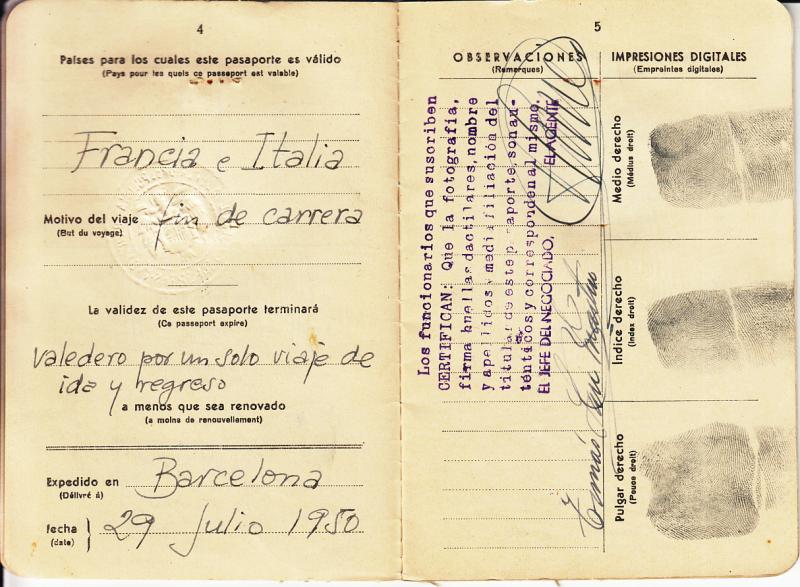 4
Países para los cuales este pasaporte es válido
(Pays pour les quels ce passeport est valable)
Francia e Italia
Motivo del viaje fin de carrera
(But du voyage)
La validez de este pasaporte terminará
(Ce passeport expire)
valedero por un solo viaje de
ida y regreso
a menos que sea renovado
(a moins de renouvellement)
Expedido en Barcelona
(Délivré á)
fecha 29 Julio 1950
(date)
5
OBSERVACIONES
(Remarques)
Los funcionarios que suscriben
CERTIFICAN: Que la fotografía,
firma huellas dactilares, nombre
y apellidos y media filiación del
titular de este pasaporte, son au-
ténticos y corresponden al mismo.
EL JEFE DEL NEGOCIADO, EL AGENTE
Tomás
IMPRESIONES DIGITALES
(Empreintes digitales)
Medio derecho
(Médius droit)
Indice derecho
(Index droit)
Pulgar derecho
(Pouce droit)